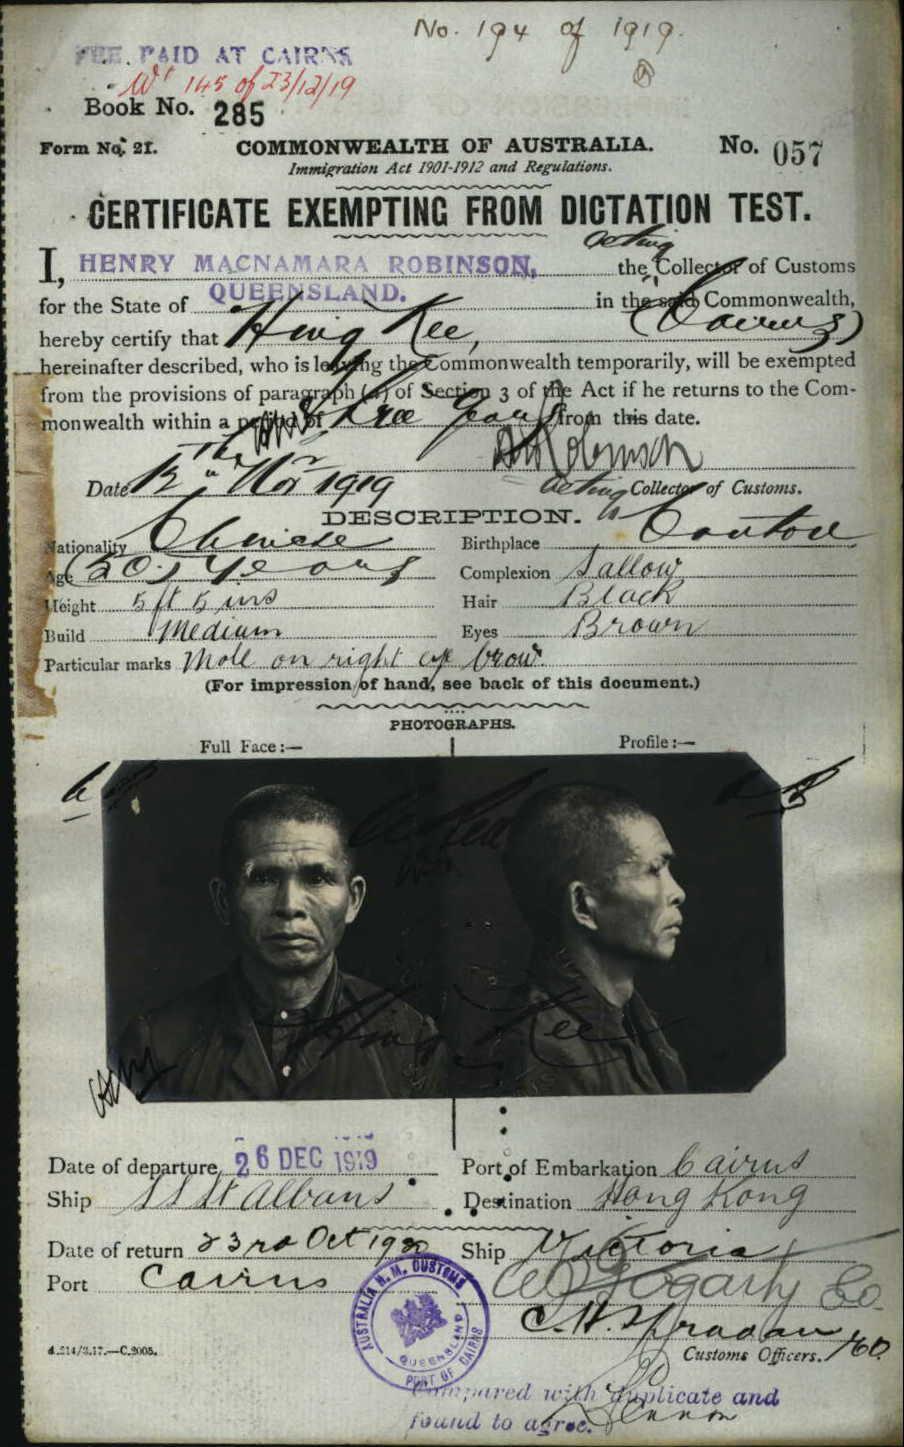 No. 194 of 1919.
FEE PAID AT CAIRNS
145 of 23/12/19
Book No. 285
Form No. 21. COMMONWEALTH OF AUSTRALIA. No. 057
Immigration Act 1901-1912 and Regulations.
CERTIFICATE EXEMPTING FROM DICTATION TEST.
acting
I, HENRY MACNAMARA ROBINSON, the Collector of Customs
for the State of QUEENSLAND. in the said Commonwealth,
(Cairns)
hereby certify that Hing Kee,
hereinafter described, who is leaving the Commonwealth temporarily, will be exempted
from the provisions of paragraph (a) of Section 3 of the Act if he returns to the Com-
monwealth within a period of three years from this date.
Robinson
Date 12th Nov 1919 acting Collector of Customs.
DESCRIPTION.
Nationality Chinese Birthplace Canton
Age (50) years Complexion Sallow
Height 5 ft 5 ins Hair Black
Build Medium Eyes Brown
Particular marks Mole on right eye brow.
(For impression of hand, see back of this document.)
PHOTOGRAPHS.
Full Face:— Profile:—
Hing Kee
Date of departure 26 DEC 1919 Port of Embarkation Cairns
Ship SS St Albans Destination Hong Kong
Date of return 23rd Oct 1920 Ship Victoria
Port Cairns Fogarty Co.
AUSTRALIA H. M. CUSTOMS
QUEENSLAND
PORT OF CAIRNS
C. H.
A.214/3.17.—C.2005. Customs Officers.
Compared with duplicate and
found to agree.